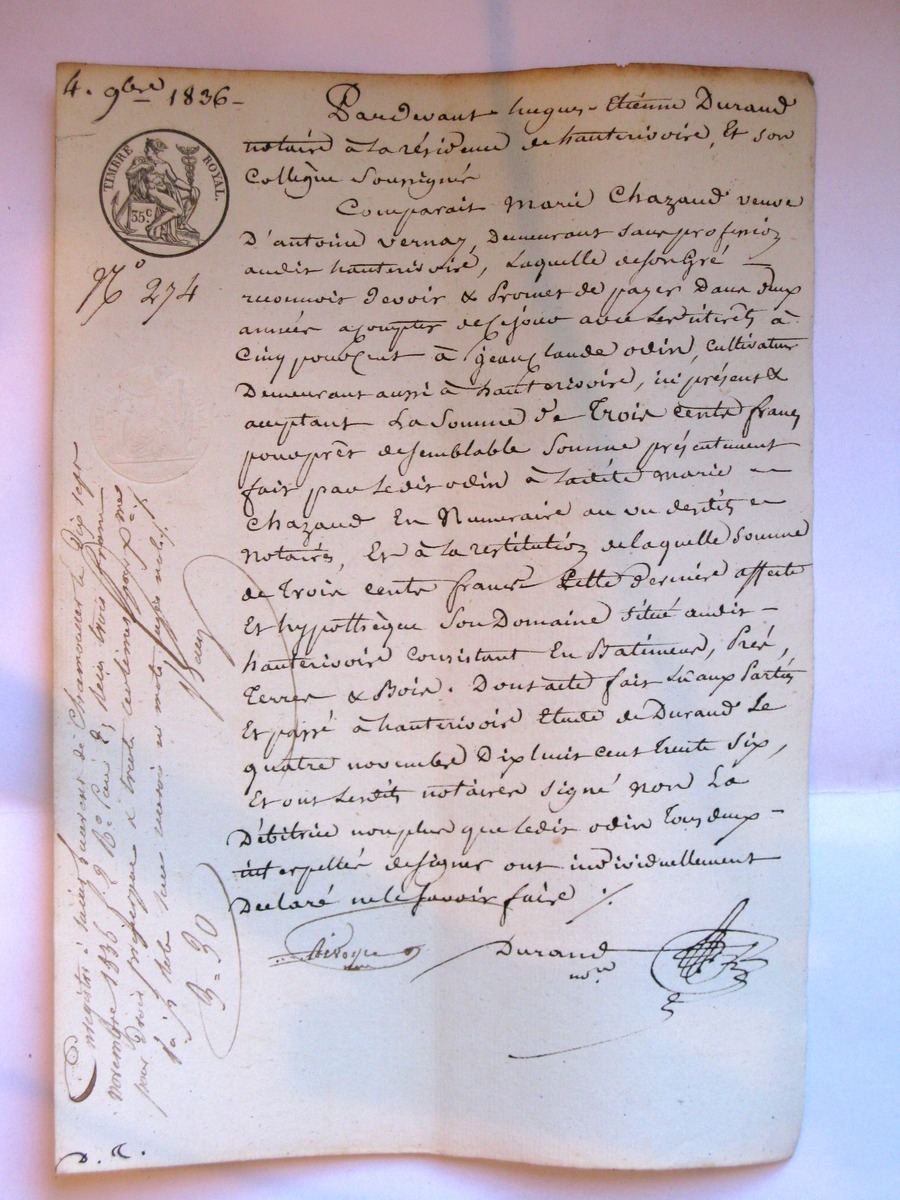 4. 9bre 1836 -
TIMBRE ROYAL.
35 c.
No 274
Pardevant hugues-Etiénne Durand
notaire à la résidence de hauterivoire, Et son
Collègue Soussignés
Comparait Marie Chazaud veuve
D'antoine Vernay, Demeurant sans profession
audit hauterivoire, Laquelle de son Gré
reconnoit devoir & Promet de payer Dans deux
années acompter de Ce jour avec Les intérêts à
Cinq pour Cent à jean Claude odin, Cultivateur
Demeurant aussi à hauterivoire, ici présent &
acceptant La Somme de Trois Cents francs
pour prêt de semblable Somme présentement
fait par Ledit odin à Ladite Marie
Chazaud En Numéraire au vu desdits
Notaires, Et à la restitution de laquelle Somme
de Trois Cents francs Cette dernière affecte
Et hypothèque Son Domaine situé audit
hauterivoire Consistant En Batimens, Prés,
Terres & Bois. Dont acte fait Lu aux Parties
Et passé à hauterivoire Etude de Durand Le
quatre novembre Dix huit cent trente six,
Et ont Lesdits notaires Signé non La
Débitrice non plus que Ledit odin Tous deux
interpellés de signer ont individuellement
Déclaré ne le Savoir faire ./.
Durand
nore
Enregistré à Saint Laurent de Chamousset le Dix sept
novembre 1836 f. 9 R°. Paié trois francs
pour Droit & trente centimes pour
3=30
D. C.